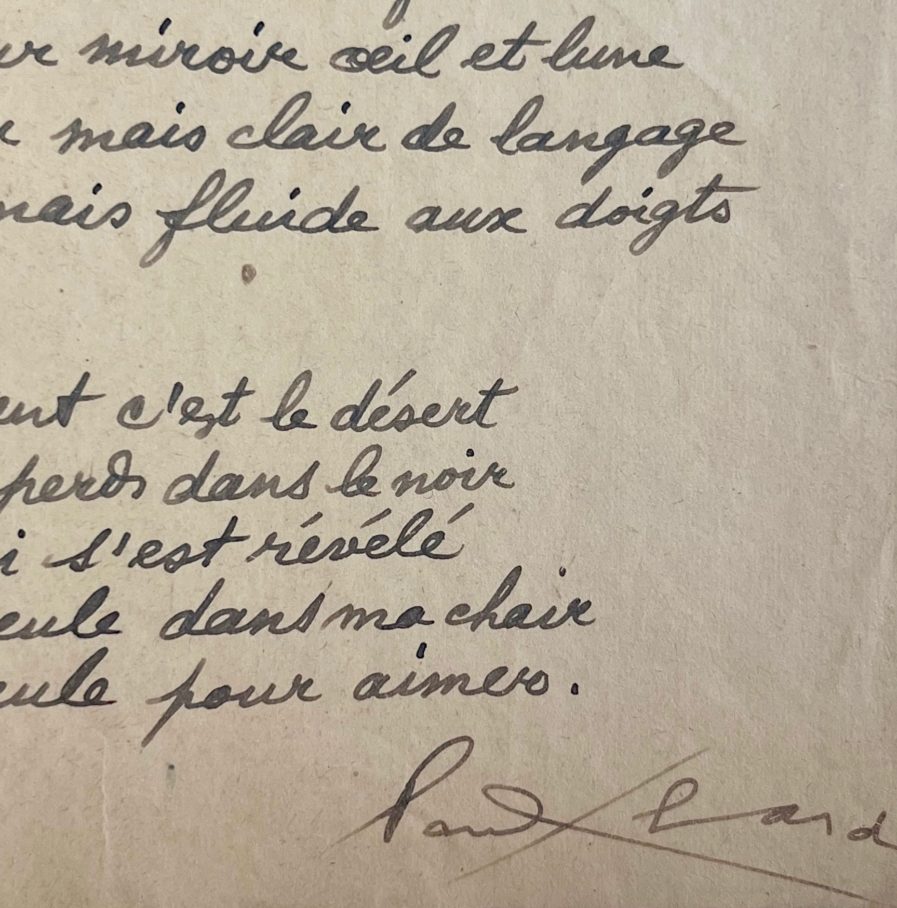 miroir œil et lune
mais clair de langage
mais fluide aux doigts
c'est le désert
perds dans le noir
s'est révélé
dans ma chair
pour aimer.
Paul Eluard